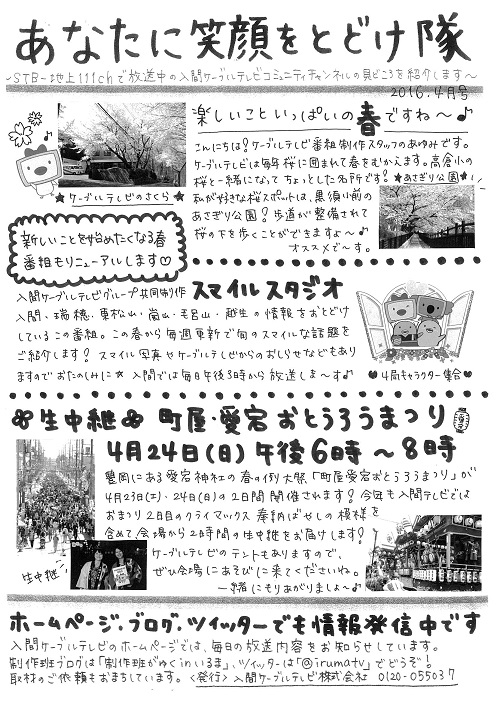 あなたに笑顔をとどけ隊
～STB-地上111chで放送中の入間ケーブルテレビコミュニティチャンネルの見どころを紹介します～
2016.4月号
楽しいこといっぱいの春ですね～♪
こんにちは?ケーブルテレビ番組制作スタッフのあゆみです。
ケーブルテレビは毎年桜に囲まれて春をむかえます。高倉小の
桜と一緒になってちょっとした名所です?
★あさぎり公園★
私が好きな桜スポットは、黒須小前の
あさぎり公園?歩道が整備されて
桜の下を歩くことができますよ～♪
オススメで～す。
★ケーブルテレビのさくら★
新しいことを始めたくなる春
番組もリニューアルします♡
入間ケーブルテレビグループ共同制作 スマイルスタジオ
入間・瑞穂・東松山・嵐山・毛呂山・越生の情報をおとどけ
しているこの番組。この春から毎週更新で旬のスマイルな話題を
ご紹介します?スマイル写真やケーブルテレビからのおしらせなどもあり
ますのでおたのしみに☆入間では毎日午後3時から放送しま～す♪
♥4局キャラクター集合♥
生中継 町屋・愛宕おとうろうまつり
4月24日(日)午後6時～8時
豊岡にある愛宕神社の春の例大祭「町屋愛宕おとうろうまつり」が
4月23日(土)・24日(日)の2日間開催されます?今年も入間テレビでは
おまつり2日目のクライマックス奉納ばやしの模様を
含めて会場から2時間の生中継をお届けします?
ケーブルテレビのテントもありますので、
ぜひ会場にあそびに来てくださいね。
一緒にもりあがりましょ～♪
生中継
ホームページ、ブログ、ツイッターでも情報発信中です
入間ケーブルテレビのホームページでは、毎日の放送内容をお知らせしています。
制作班ブログは「制作班がゆくinいるま」、ツイッターは「@irumatv」でどうぞ!
取材のご依頼もおまちしています。〈発行〉入間ケーブルテレビ株式会社 0120-055037